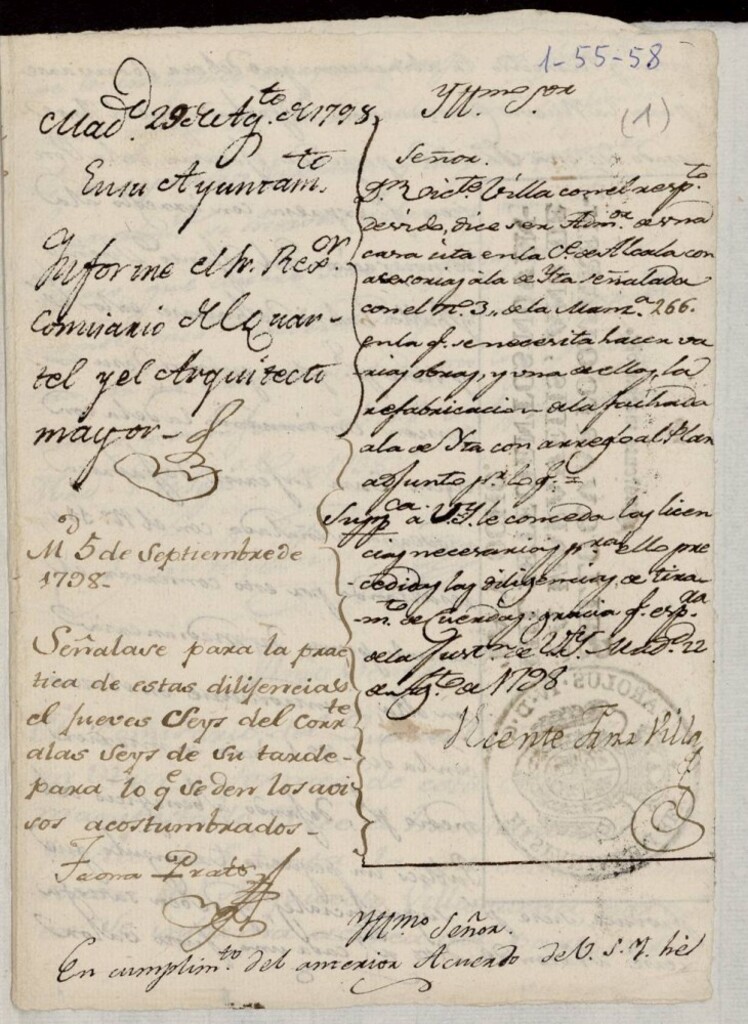 1-55-58
(1)
Mad.d 29 de Ag.to de 1798,
En su Ayuntam.to
Informe el Sr. Rex.or
Comisario del Quar-
tel y el Arquitecto
mayor-
M.d 5 de Septiembre de
1798-
Señalase para la prac
tica de estas diligencias
el jueves Seys del corr.te
a las seys de su tarde-
para lo q.e se den los avi
sos acostumbrados-
Prats
Yllmo Sor
Señor.
D.n Vic.te Villa con el resp.to
devido, dice ser Adm.or de una
casa sita en la C.e de Alcala con
accesorias a la de Yta señalada
con el n.o 3,, de la Manz.a 266.
en la q. se necesita hacer va
rias obras, y una de ellas, la
refabricacion de la fachada
a la de Yta con arreglo al Plan
adjunto p.r lo q. =
Supp.ca a V.S.Y. le conceda las licen
cias necesarias p.ra ello pre
-cedidas las diligencias de tira-
-m.to de Cuerdas: gracia q. esp.ra
de la just.n de V.S.Y. Mad.d 22
de Ag.to de 1798
Vicente Villa
Yllmo Señor.
En cumplim.to del anterior Acuerdo de V. S. Y. he